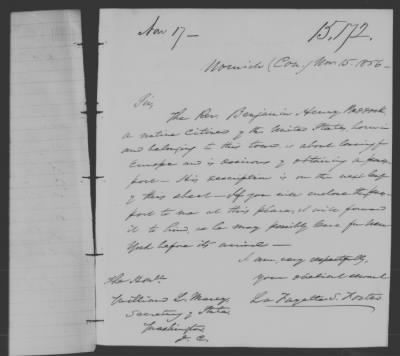 Nov 17—
15,172.
Norwich (Con.) Nov. 15. 1856—
Sir,
The Rev. Benjamin Henry Paddock
a native citizen of the United States, born in
and belonging to this town is about leaving for
Europe and is desirous of obtaining a pass
port— His description is on the next leaf
of this sheet— If you will enclose the pass
port to me at this place, I will forward
it to him, as he may possibly leave for New
York before its arrival—
I am, very respectfully,
your obedient servant
La Fayette S. Foster
The Hon.
William L. Marcy,
Secretary of State,
Washington
D. C.